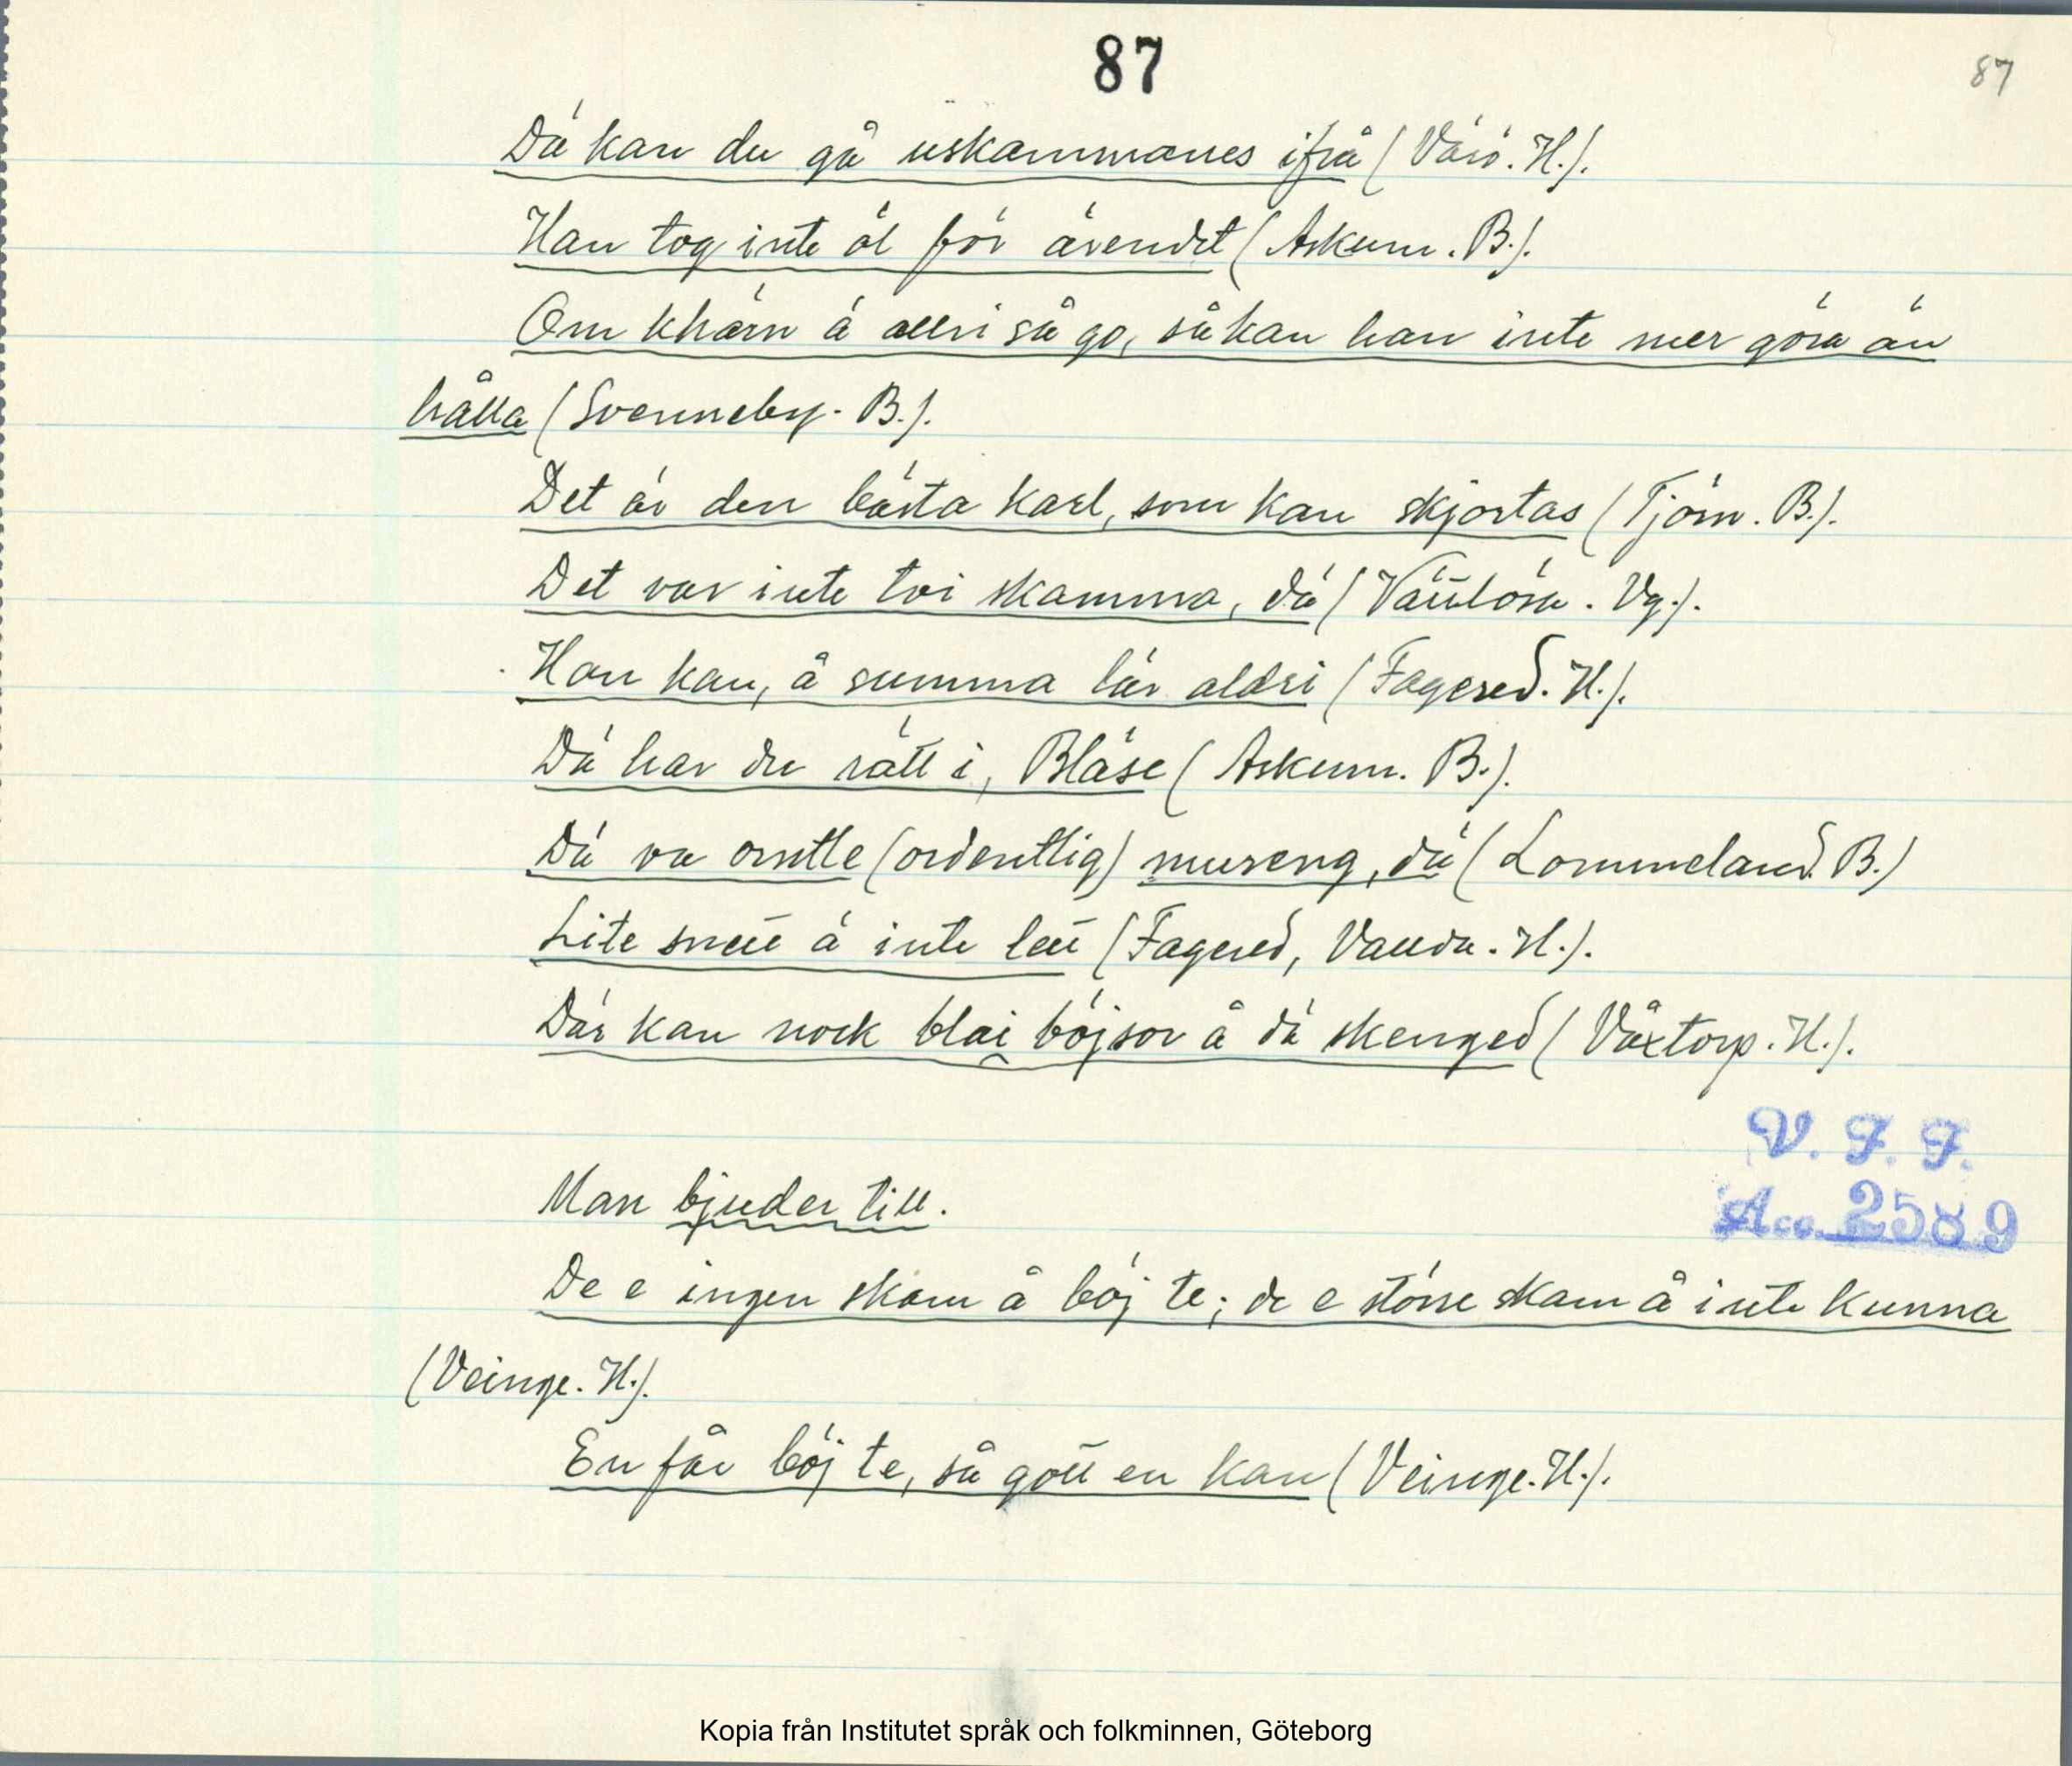 87
87
Dä kan du gå uskammanes ifrå (Värö. H.).
Han tog inte öl för ärendet (Askum. B.).
Om khärn ä allri så go, så kan han inte mer göra än
hålla (Svenneby. B.).
Det är den bästa karl, som kan skjortas (Tjörn. B.).
Det var inte tvi skamma, dä (Vättlösa. Vg.).
Han kan, å summa lär aldri (Fagered. H.).
Dä har du rätt i, Bläse (Askum. B.).
Dä va orntle (ordentlig) mureng, dä (Lommeland. B.)
Lite snett ä inte lett (Fagered, Vanda. H.).
Där kan nock blai böjsor å dä skenged (Våxtorp. H.).
V. F. F.
Acc. 2589
Man bjuder till.
De e ingen skam å böj te; de e större skam å inte kunna
(Veinge. H.).
En får böj te, så gott en kan (Veinge. H.).
Kopia från Institutet språk och folkminnen, Göteborg